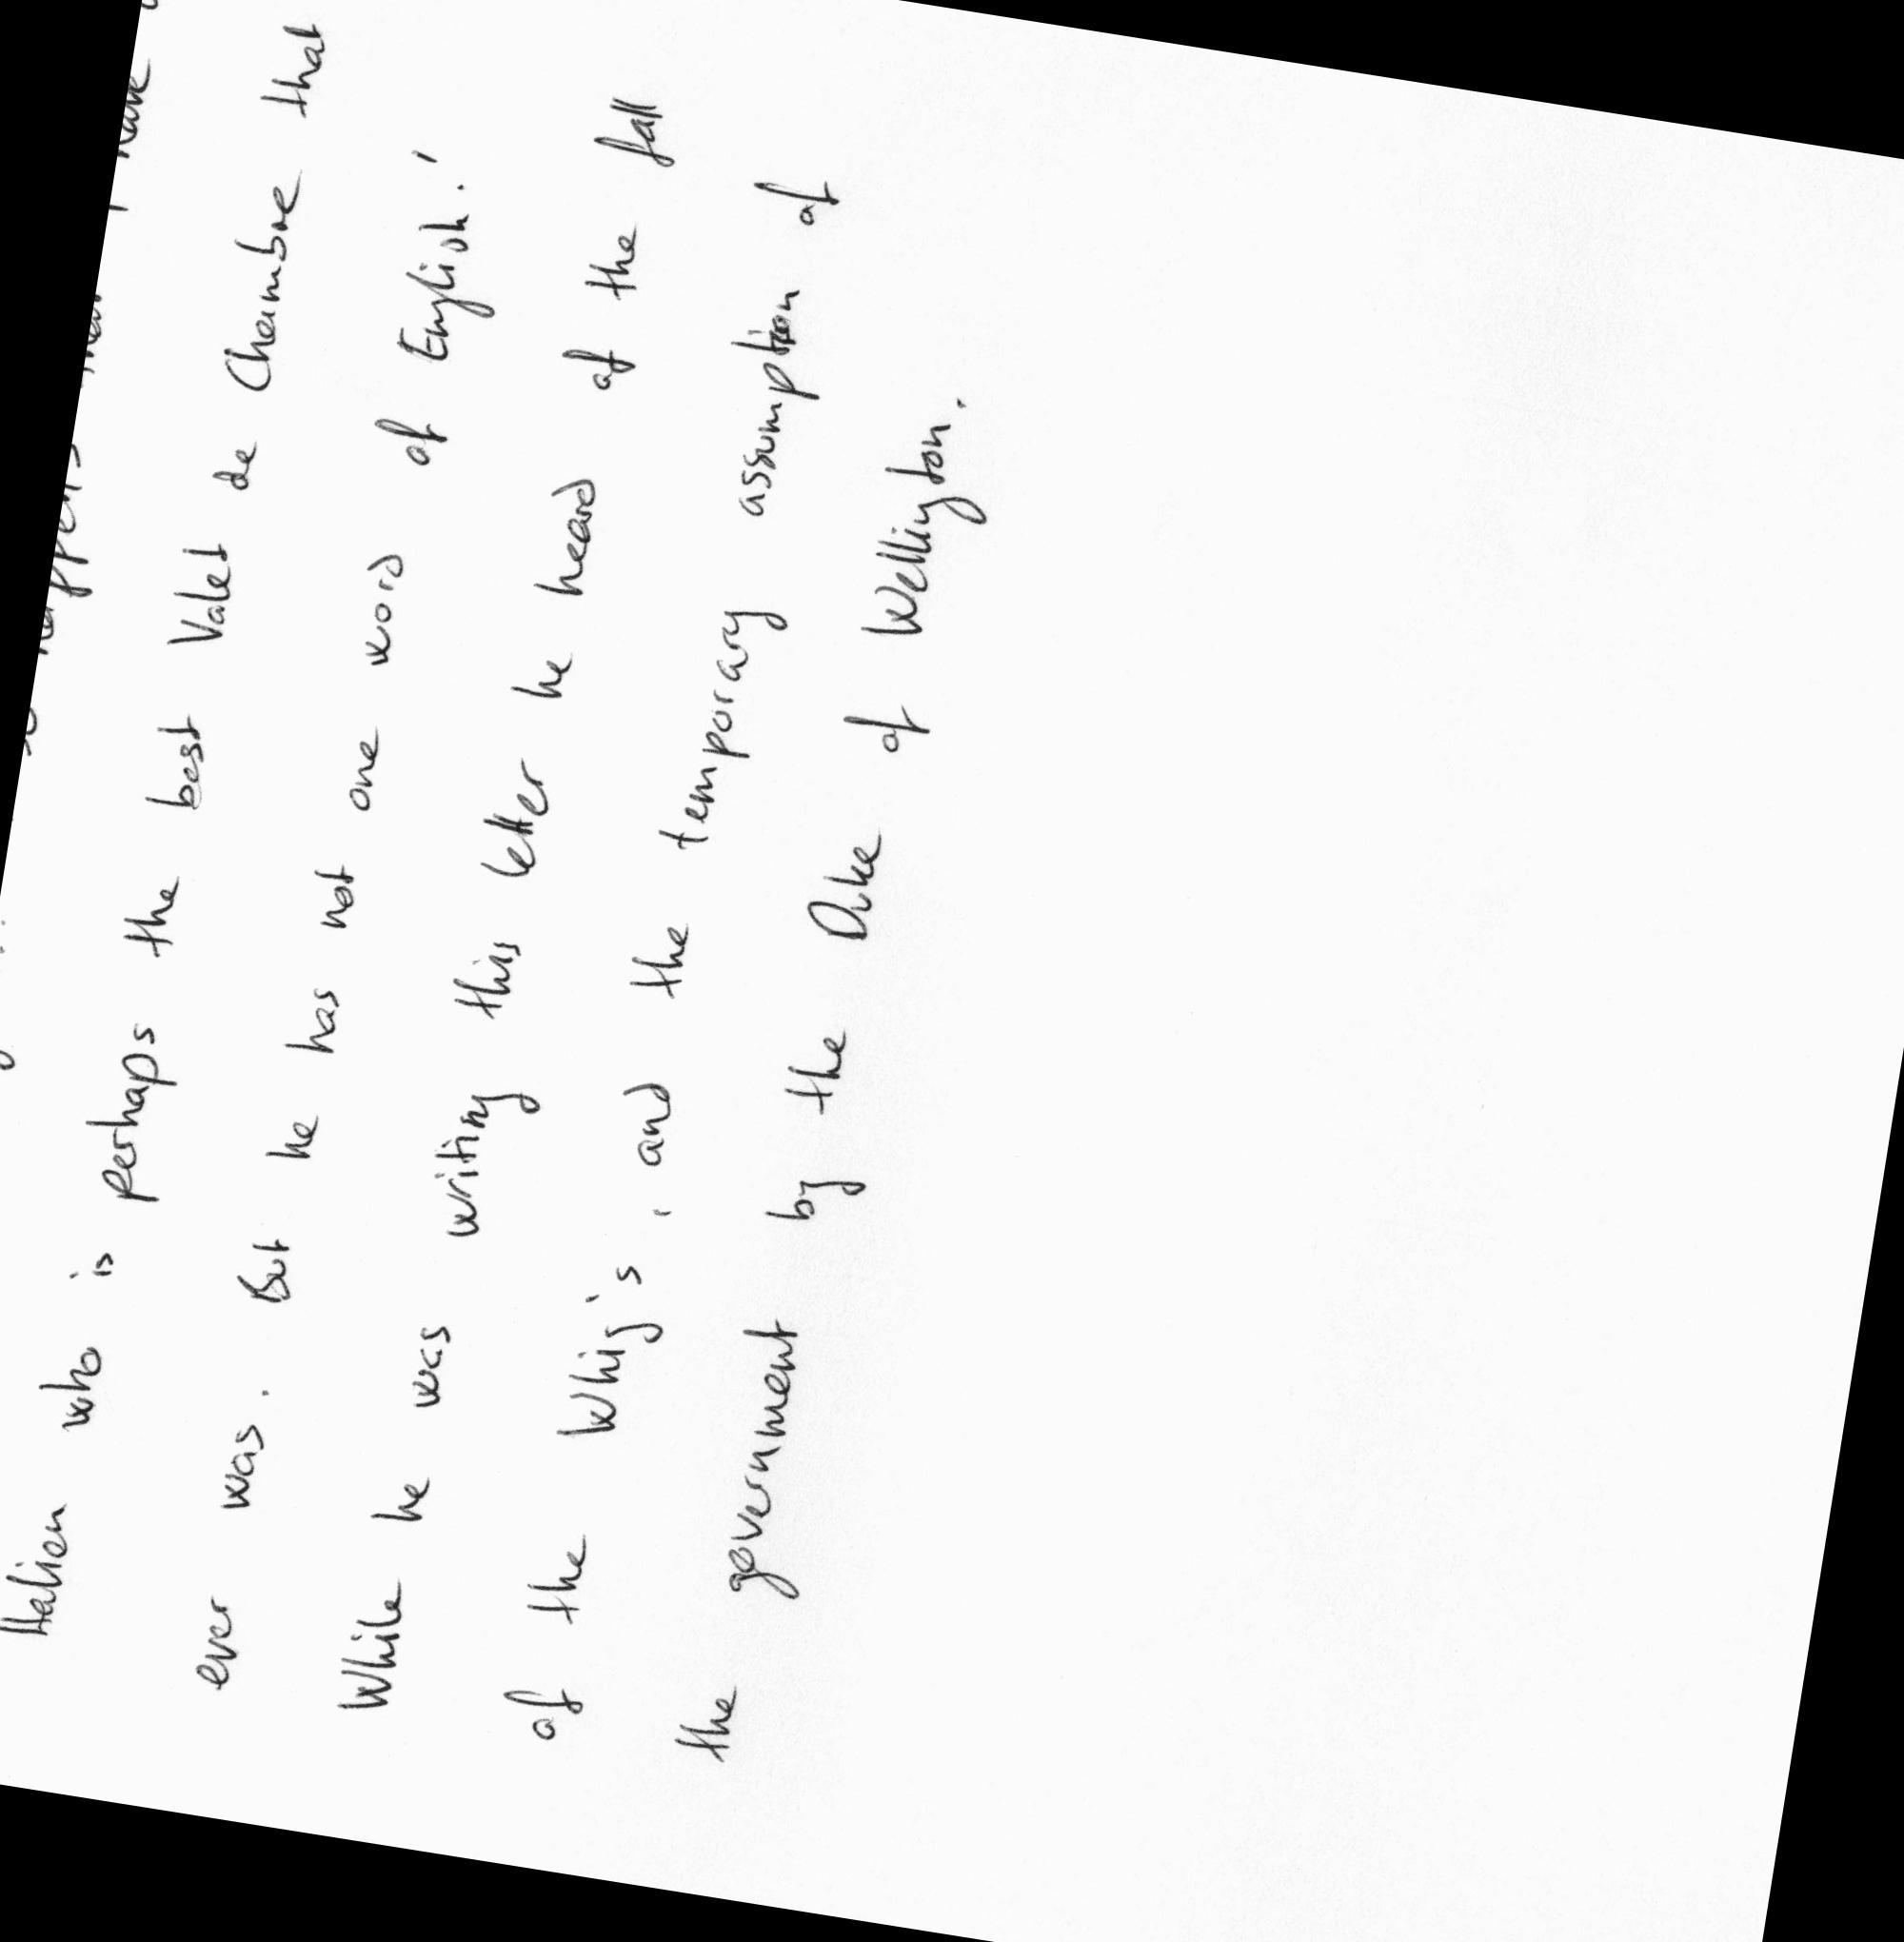 happens that I have
Italian who is perhaps the best Valet de Chambre that
ever was. But he has not one word of English!'
While he was writing this letter he heard of the fall
of the Whig's, and the temporary assumption of
the government by the Duke of Wellington.